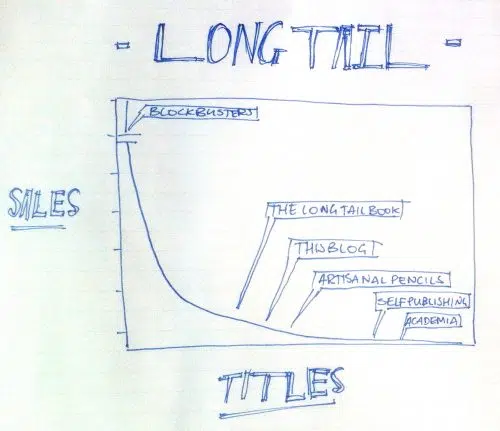 - LONG TAIL -
BLOCKBUSTERS
SALES
THE LONG TAIL BOOK
THIS BLOG
ARTISANAL PENCILS
SELFPUBLISHING
ACADEMIA
TITLES